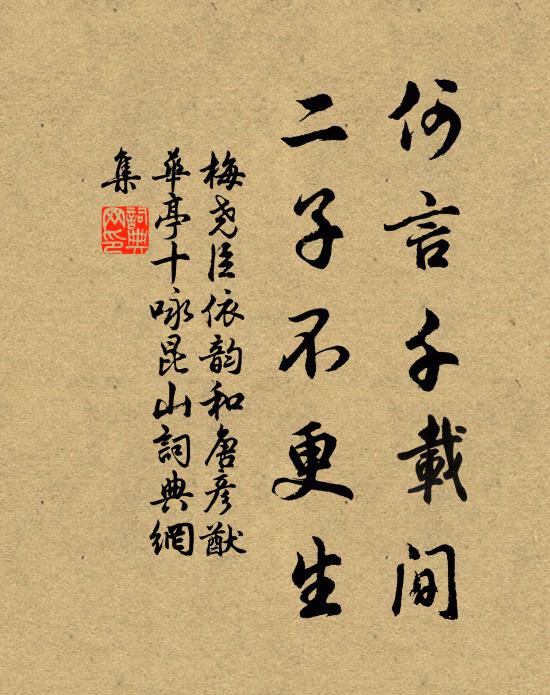 何言千載間
二子不更生
梅尧臣依韵和唐彦猷
華亭十咏昆山詞典網
集
詞典
网印